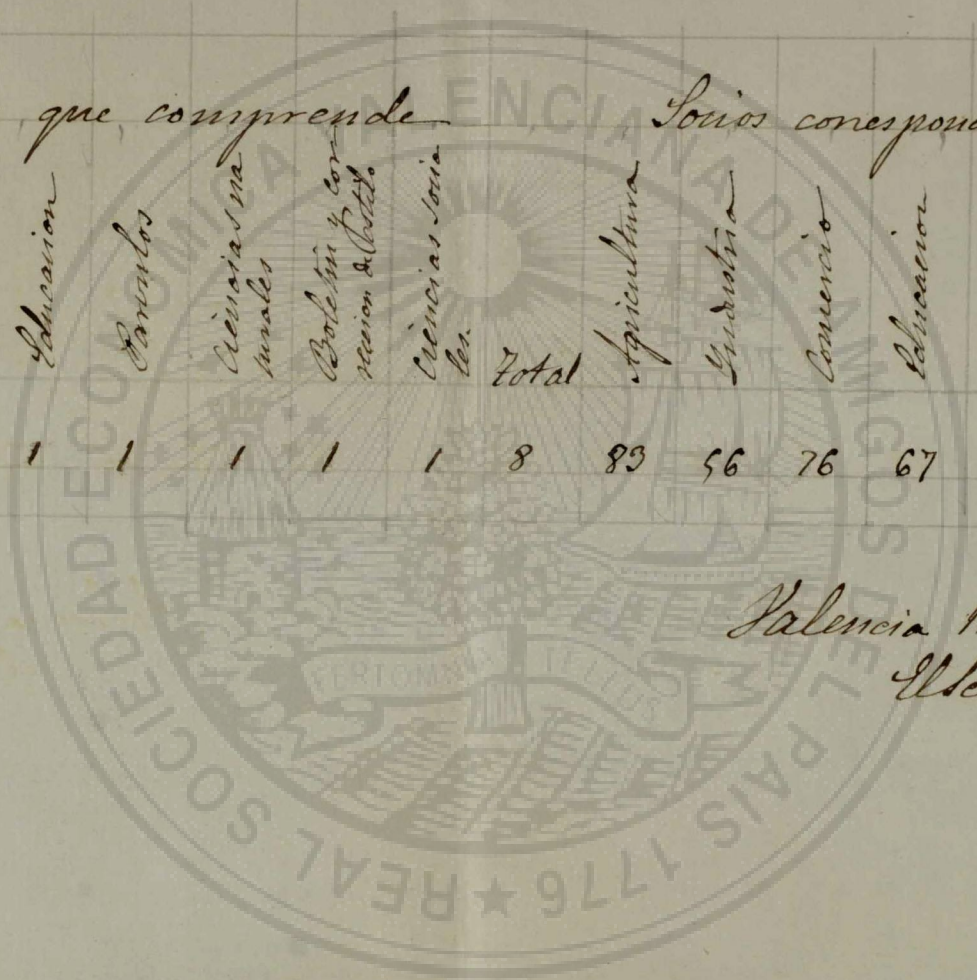 que comprende Socios correspond
Educacion
Parvulos
Ciencias na
turales
Boletin y cor
reccion de Estilo
Ciencias socia
les.
Total
Agricultura
Industria
Comercio
Educacion
1 1 1 1 1 8 83 56 76 67
Valencia 1
El Se
REAL SOCIEDAD ECONOMICA VALENCIANA DE AMIGOS DEL PAIS 1776 ★
FERT OMNIA TELLUS